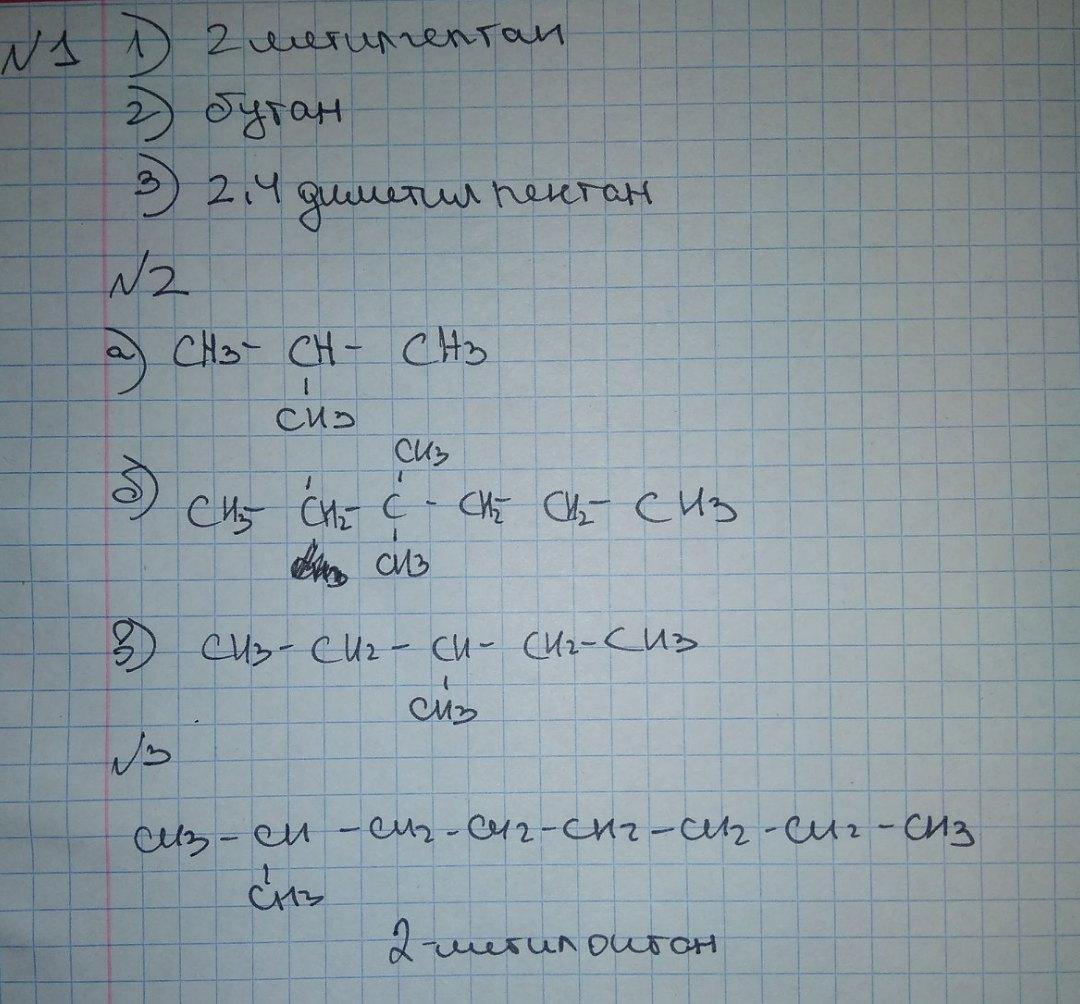 №1 1) 2 метилгептан
2) бутан
3) 2,4 диметил пентан
№2
а) CH3- CH- CH3
CH3
CH3
б) CH3- CH2- C - CH2- CH2- CH3
CH3
3) CH3- CH2- CH- CH2- CH3
CH3
№3
CH3- CH -CH2-CH2-CH2-CH2-CH2-CH3
CH3
2-метилоктан